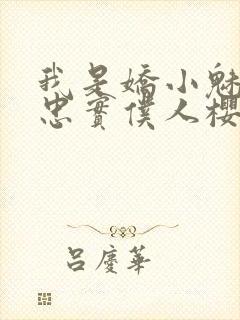 我是嬌小魅
忠實僕人櫻
吕慶華